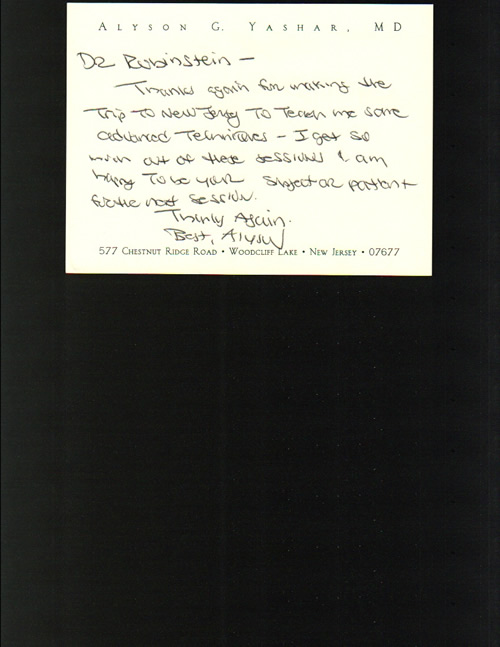 ALYSON G. YASHAR, MD
Dr Rubinstein —
Thanks again for making the
Trip to New Jersey to teach me some
advanced techniques – I get so
much out of these sessions & am
happy to be your subject or patient
for the next session.
Thanks Again.
Best, Alyson
577 CHESTNUT RIDGE ROAD • WOODCLIFF LAKE • NEW JERSEY • 07677